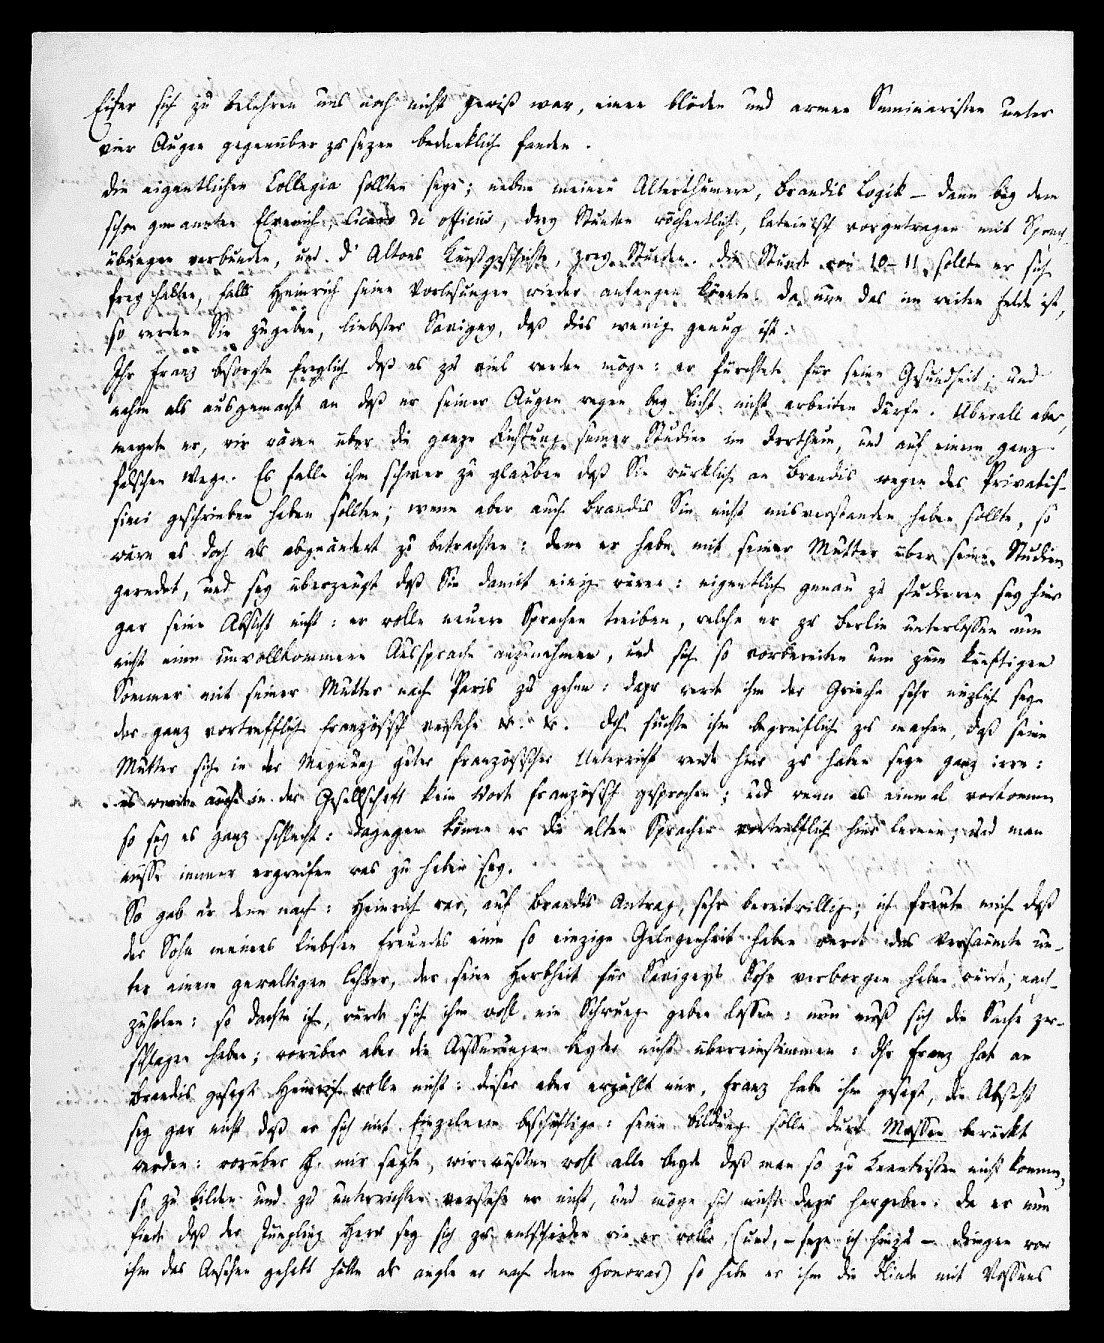 Eifer sich zu belehren uns noch nicht gewiß war, einen blöden und armen Seminaristen unter
vier Augen gegenüber zu sezen bedenklich fanden.
Die eigentlichen Collegia sollten seyn; neben meinen Alterthümern, Brandis Logik – dann bey dem
schon genannten Elvenich, Cicero de officiis, drey Stunden wöchentlich, lateinisch vorgetragen mit Sprach-
übungen verbunden, und d'Altons Kunstgeschichte, zwey Stunden. Die Stunde von 10–11 sollte er sich
frey halten, falls Heinrich seine Vorlesungen wieder anfangen könnte. Da nun das im weiten Felde ist,
so werden Sie zugeben, liebster Savigny, daß dies wenig genug ist.
Ihr Franz besorgte freylich daß es zu viel werden möge: er fürchtete für seine Gesundheit; und
nahm als ausgemacht an daß er seiner Augen wegen bey Licht nicht arbeiten dürfe. Überall aber,
meynte er, wir wären über die ganze Richtung seiner Studien im Irrthum, und auf einem ganz
falschen Wege. Es falle ihm schwer zu glauben daß Sie würklich an Brandis wegen des Privatis-
simi geschrieben haben sollten; wenn aber auch Brandis Sie nicht misverstanden haben sollte, so
wäre es doch als abgeändert zu betrachten: denn er habe mit seiner Mutter über seine Studien
geredet, und sey überzeugt daß Sie damit einig wären: eigentlich genau zu studieren sey hier
gar seine Absicht nicht: er wolle neuere Sprachen treiben, welche er zu Berlin unterlassen um
nicht eine unvollkommene Aussprache anzunehmen, und sich so vorbereiten um zum künftigen
Sommer mit seiner Mutter nach Paris zu gehen: dazu werde ihm der Grieche sehr nüzlich seyn
der ganz vortrefflich französisch verstehe &. &. Ich suchte ihm begreiflich zu machen, daß seine
Mutter sich in der Meynung guter französischer Unterricht werde hier zu haben seyn ganz irre:
es werde auch in der Gesellschaft kein Wort französisch gesprochen; und wenn es einmal vorkomme
so sey es ganz schlecht: dagegen könne er die alten Sprachen vortrefflich hier lernen; und man
müsse immer ergreifen was zu haben sey.
So gab er denn nach: Heinrich war, auf Brandis Antrag, sehr bereitwillig; ich freute mich daß
der Sohn meines liebsten Freundes eine so einzige Gelegenheit haben werde das Versäumte un-
ter einem gewaltigen Lehrer, der seine Herbheit für Savignys Sohn verborgen haben würde, nach-
zuholen: so dachte ich, würde sich ihm wohl ein Schwung geben lassen: nun muß sich die Sache zer-
schlagen haben; worüber aber die Äußerungen beyder nicht übereinstimmen: Ihr Franz hat an
Brandis gesagt Heinrich wolle nicht: dieser aber erzählt mir, Franz habe ihm gesagt, die Absicht
sey gar nicht daß er sich mit Einzelnem beschäftige: seine Bildung solle durch Massen bewirkt
werden: worüber H. mir sagte, wir wüßten wohl alle beyde daß man so zu Kenntnissen nicht komme,
so zu bilden und zu unterrichten verstehe er nicht, und möge sich nicht dazu hergeben. Da er nun
finde daß der Jüngling Herr sey sich zu entscheiden wie er wolle, (und, – seze ich hinzu – Dringen von
ihm das Ansehen gehabt hätte als angle er nach dem Honorar) so habe er ihm die Stunde mit Vossens